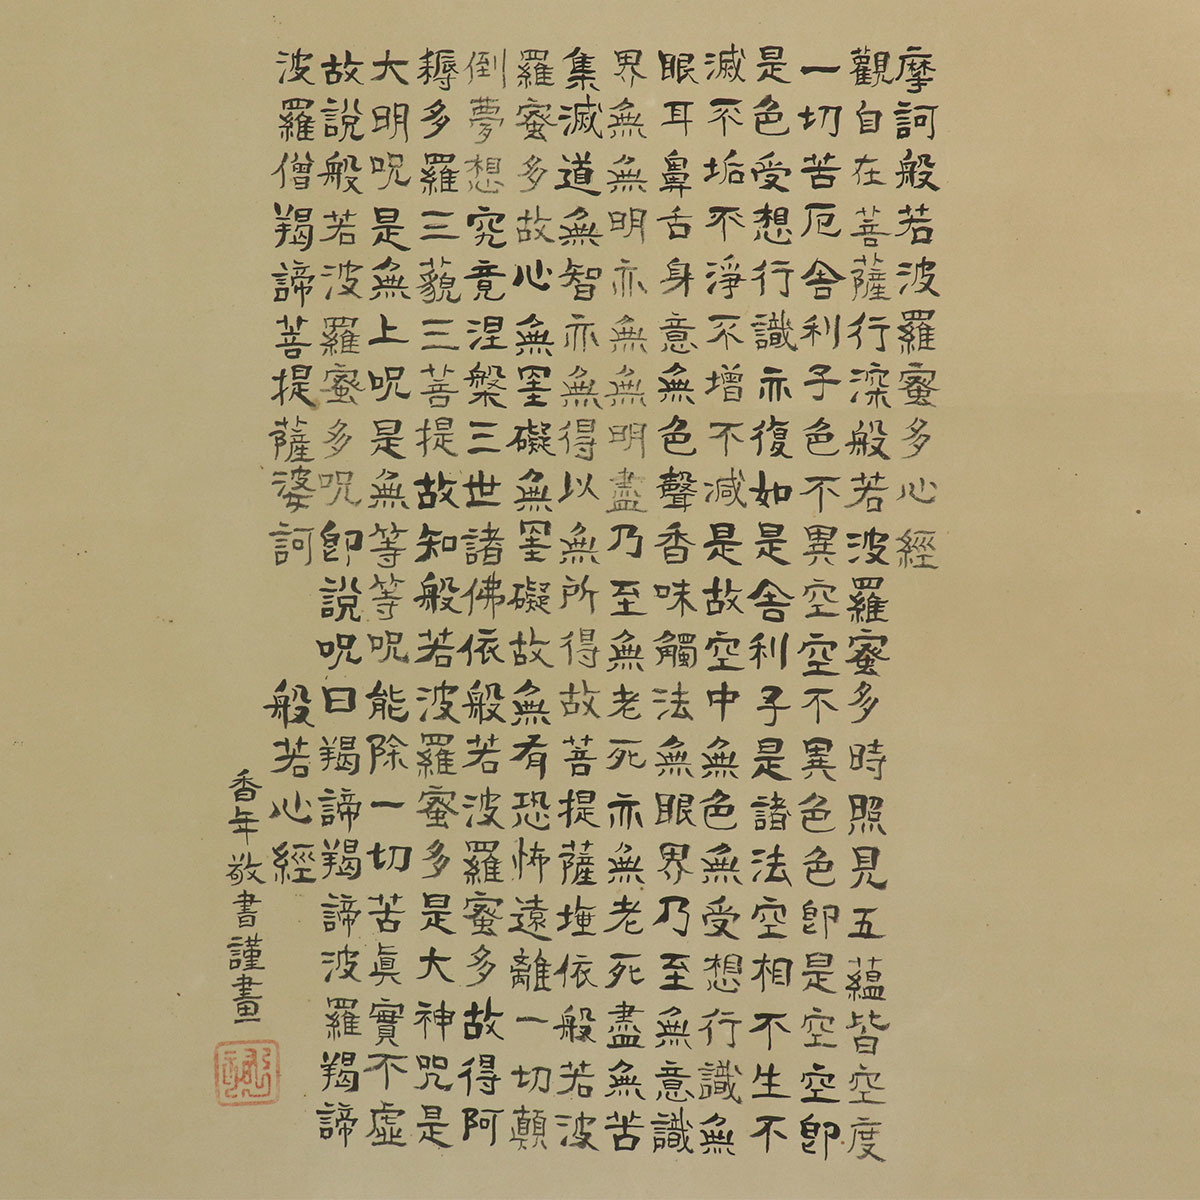 摩訶般若波羅蜜多心經
觀自在菩薩行深般若波羅蜜多時照見五蘊皆空度
一切苦厄舎利子色不異空空不異色色即是空空即
是色受想行識亦復如是舎利子是諸法空相不生不
滅不垢不淨不增不減是故空中無色無受想行識無
眼耳鼻舌身意無色聲香味觸法無眼界乃至無意識
界無無明亦無無明盡乃至無老死亦無老死盡無苦
集滅道無智亦無得以無所得故菩提薩埵依般若波
羅蜜多故心無罣礙無罣礙故無有恐怖遠離一切顛
倒夢想究竟涅槃三世諸佛依般若波羅蜜多故得阿
耨多羅三藐三菩提故知般若波羅蜜多是大神呪是
大明呪是無上呪是無等等呪能除一切苦眞實不虛
故說般若波羅蜜多呪即說呪曰羯諦羯諦波羅羯諦
波羅僧羯諦菩提薩婆訶 般若心經
香年敬書謹畫